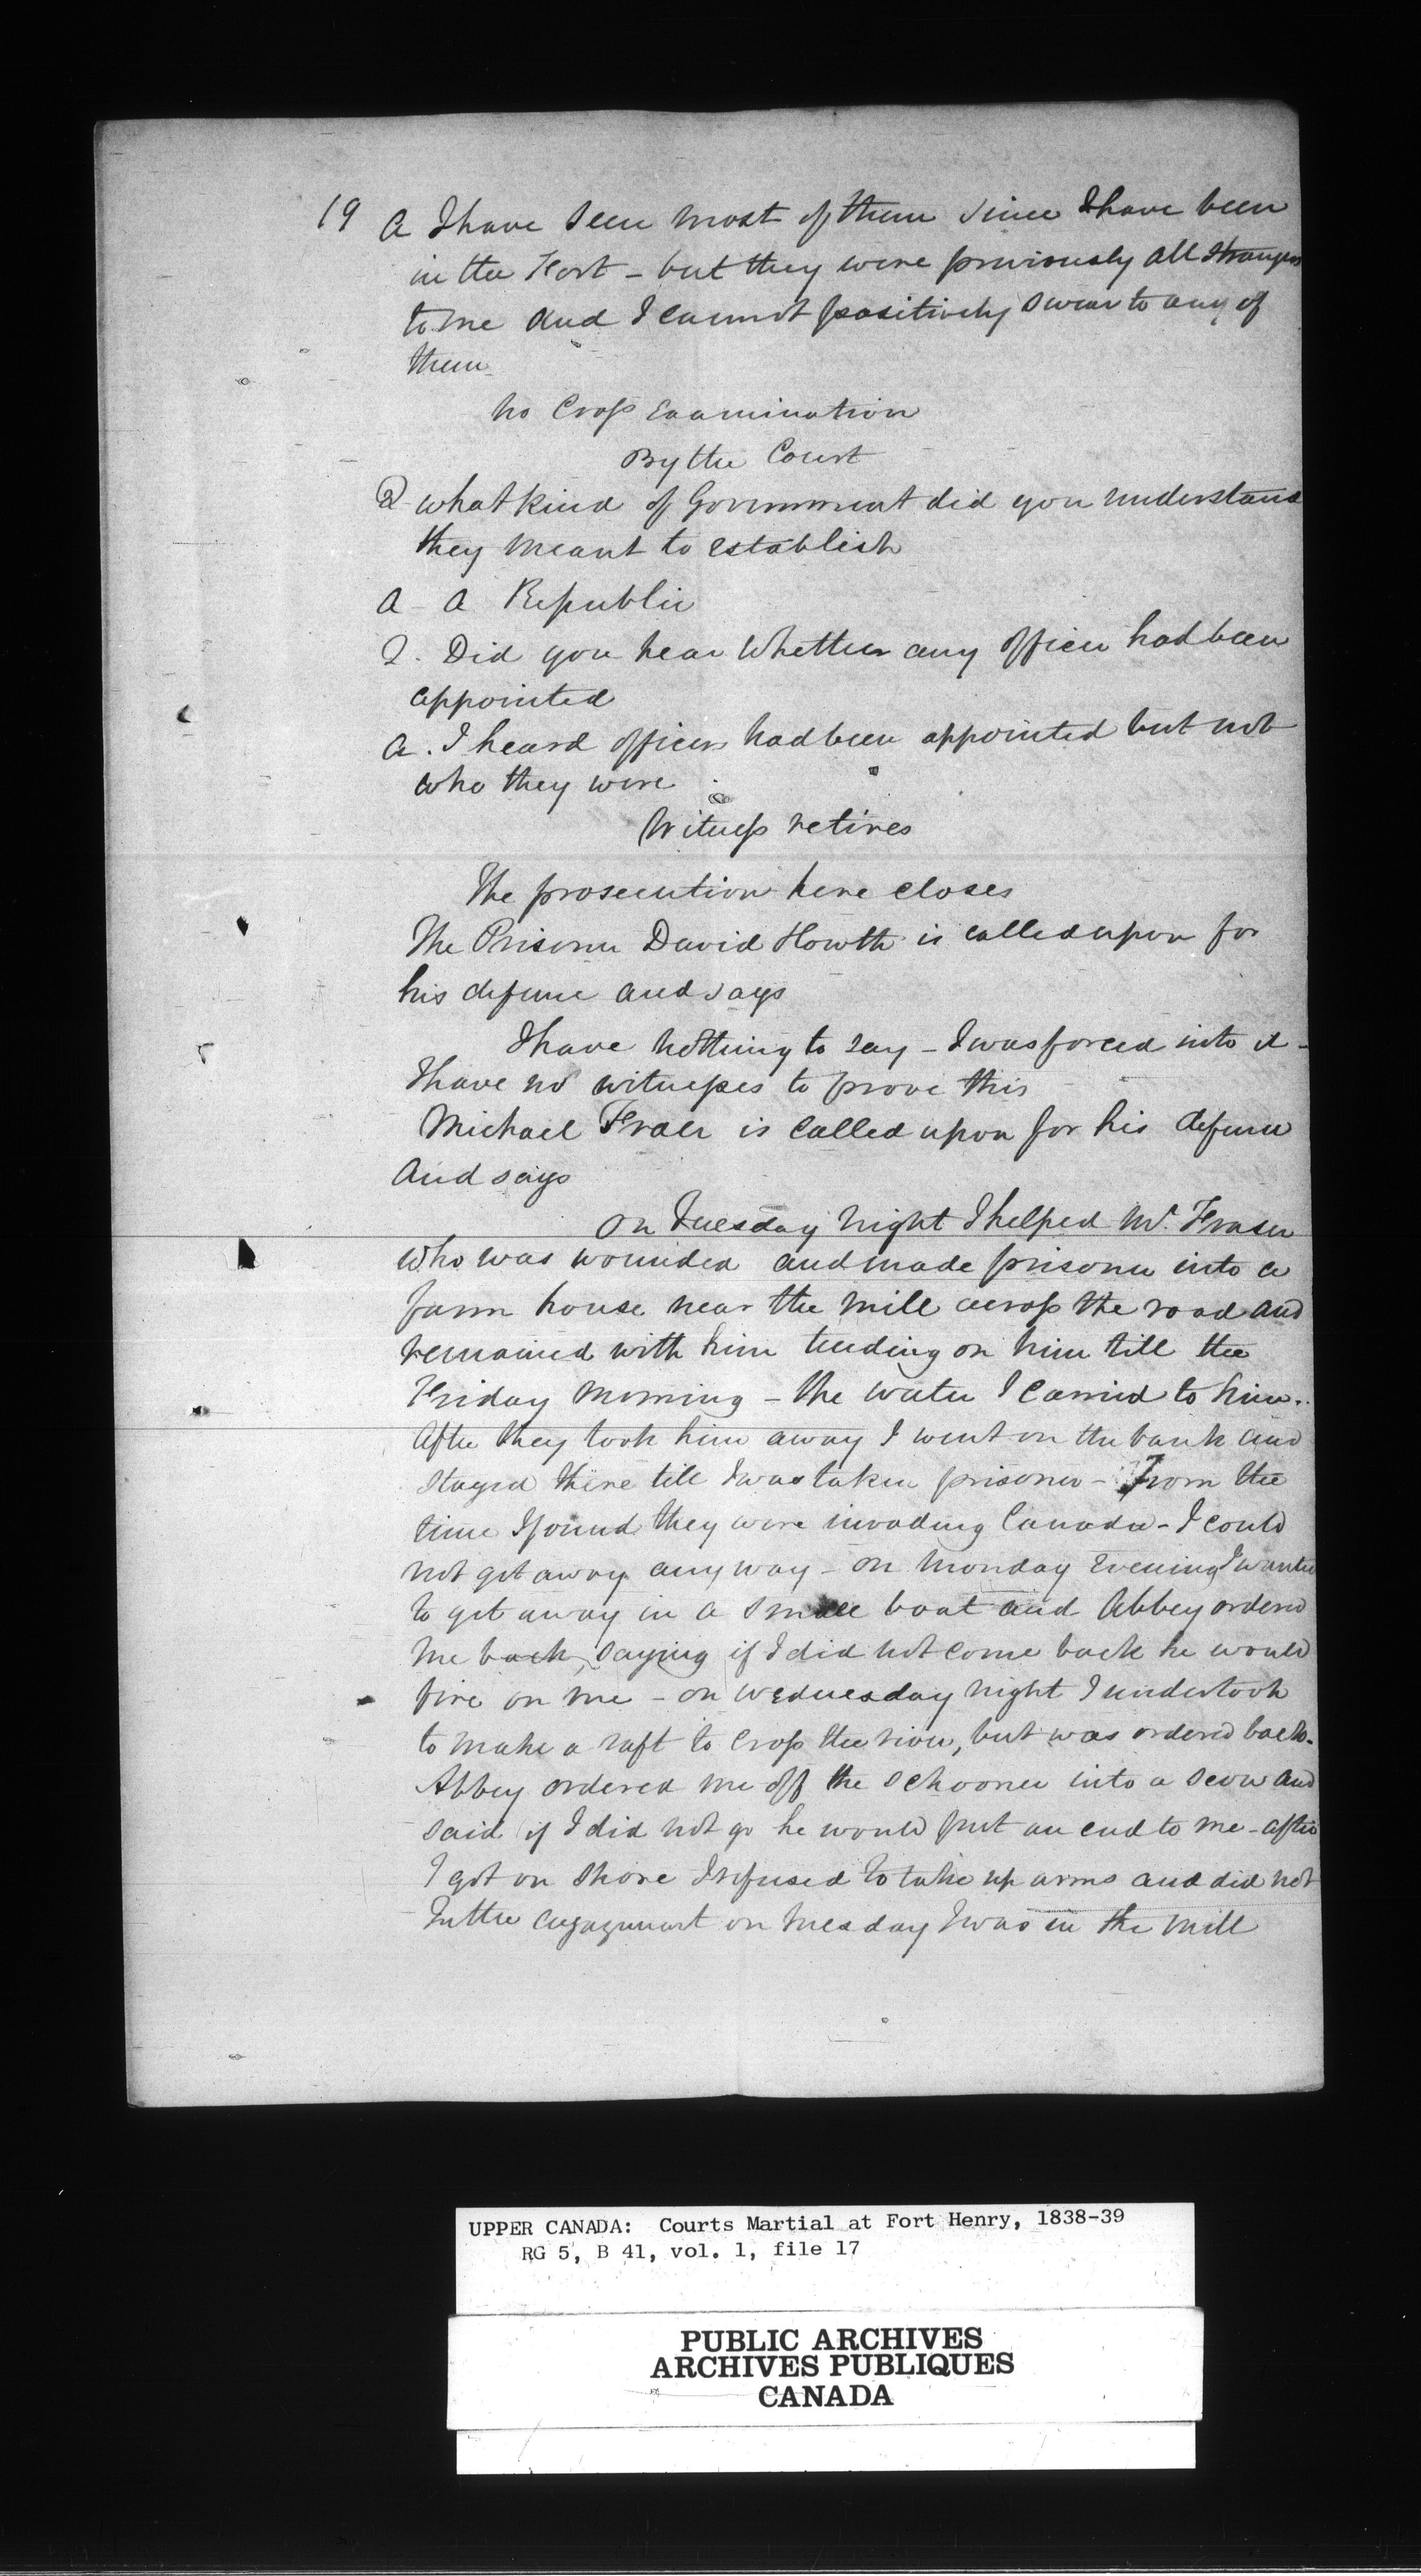 19 A I have seen most of them since I have been
in the Fort - but they were previously all strangers
to me and I cannot positively swear to any of
them
No Cross Examination
By the Court
Q what kind of Government did you understand
they meant to establish
A - A Republic
Q. Did you hear Whether any officers had been
appointed
A. I heard officers had been appointed but not
who they were
Witness retires
The prosecution here closes
The Prisoner David Howth is called upon for
his defence and says
I have nothing to say - I was forced into it -
I have no witnesses to prove this
Michael Fraer is called upon for his defence
and says
On Tuesday night I helped Mr. Fraser
who was wounded and made prisoner into a
farm house near the Mill across the road and
remained with him tending on him till the
Friday Morning - the water I carried to him..
After they took him away I went on the bank and
stayed there till I was taken prisoner - From the
time I found they were invading Canada - I could
not get away any way - on Monday Evening I wanted
to get away in a small boat and Abbey ordered
me back, saying if I did not come back he would
fire on me - on Wednesday night I undertook
to make a raft to cross the river, but was ordered back.
Abbey ordered me off the Schooner into a scow and
said if I did not go he would put an end to me - after
I got on shore I refused to take up arms and did not
In the engagement on Tuesday I was in the Mill
UPPER CANADA: Courts Martial at Fort Henry, 1838-39
RG 5, B 41, vol. 1, file 17
PUBLIC ARCHIVES
ARCHIVES PUBLIQUES
CANADA